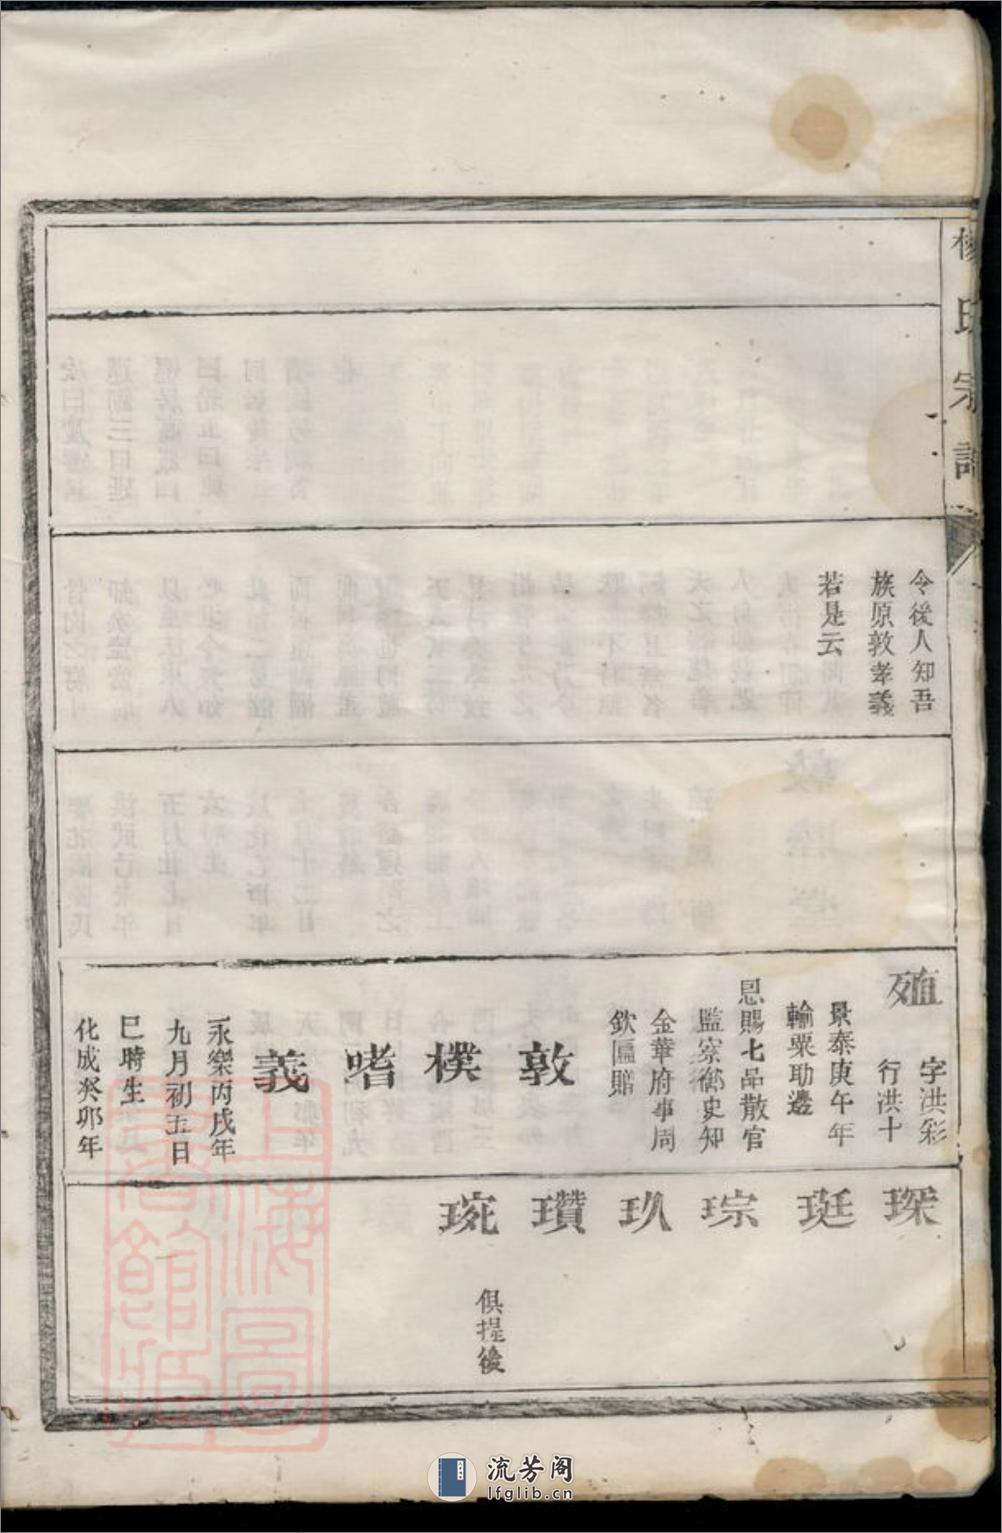 楊氏宗譜
令後人知吾
族原敦孝義
若是云
殖
字洪彩
行洪十
景泰庚午年
輸粟助邊
恩賜七品散官
監察御史知
金華府事周
欽匾贈
敦
樸
嗜
義
永樂丙戌年
九月初五日
巳時生
化成癸卯年
琛
珽
琮
玖
瓚
琬
俱提後
上海圖書館藏
流芳阁
lfglib.cn